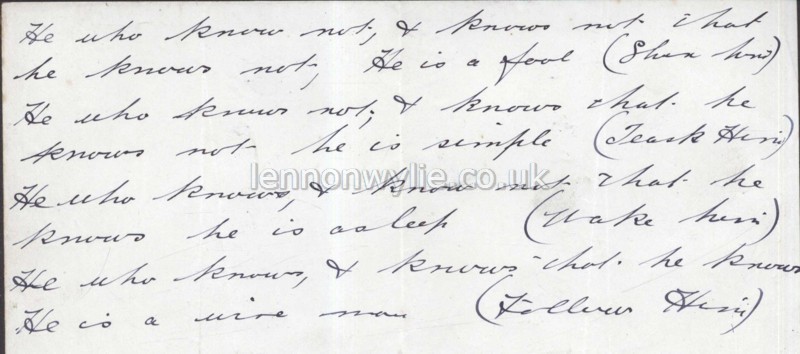 He who know not, & knows not that
he knows not, He is a fool (Shun him)
He who knows not, & knows that he
knows not he is simple (Teach Him)
lennonwylie.co.uk
He who knows, & know not that he
knows he is asleep (Wake him)
He who knows, & knows that he knows
He is a wise man (Follow Him)